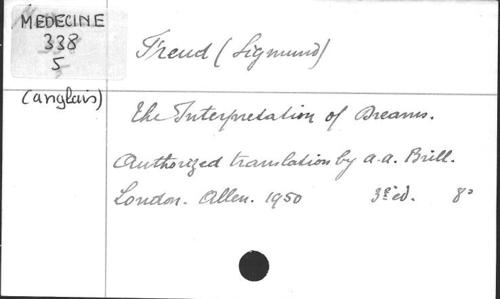 MEDECINE
338
5
(anglais)
Freud (Sigmund)
The Interpretation of Dreams.
Authorized translation by a.a. Brill.
London. Allen. 1950 3e éd. 8°